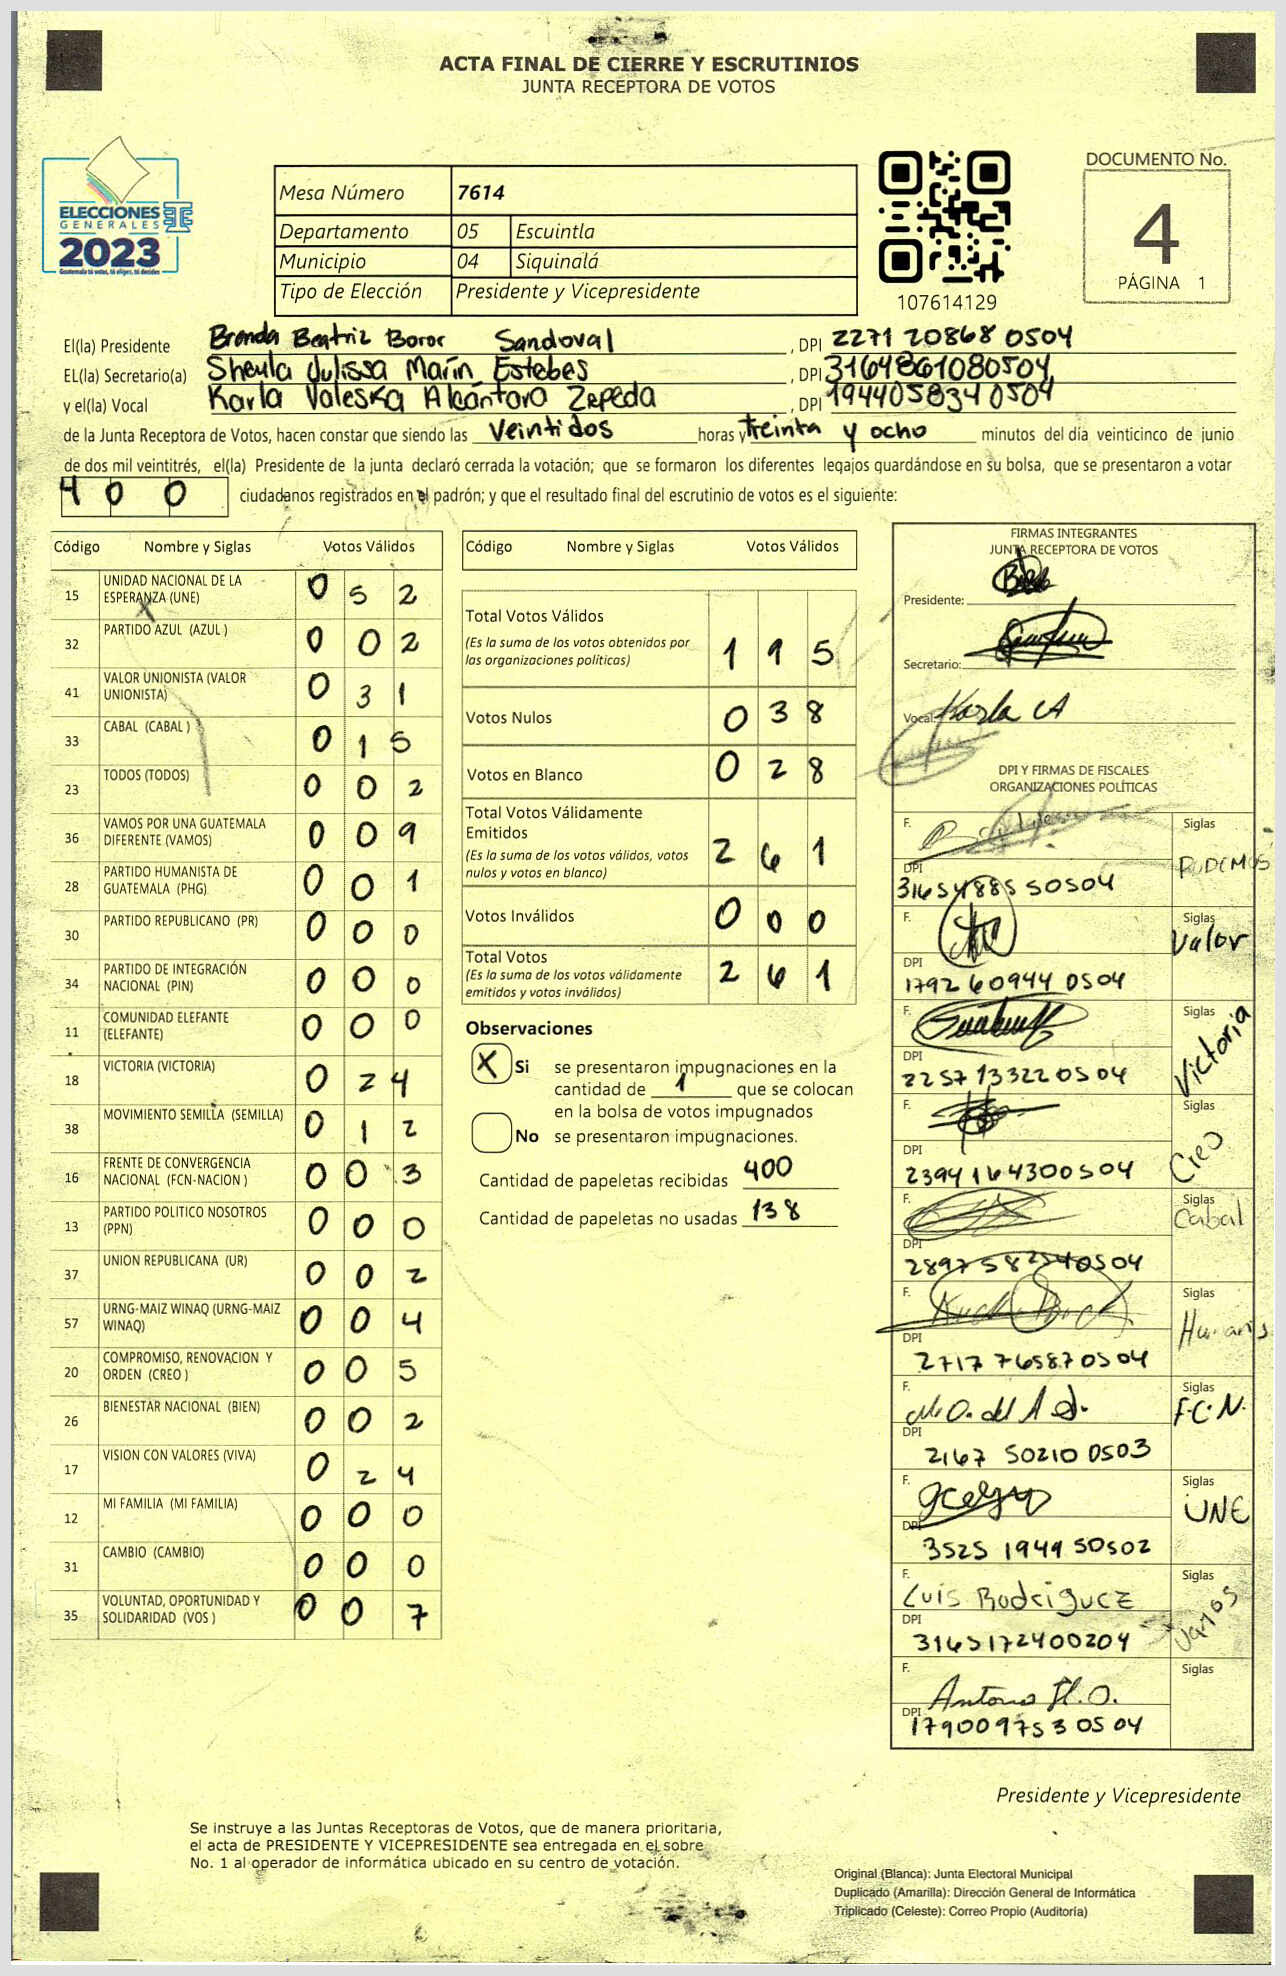 ACTA FINAL DE CIERRE Y ESCRUTINIOS
JUNTA RECEPTORA DE VOTOS
ELECCIONES
GENERALES
2023
Guatemala tú votas, tú eliges, tú decides
Mesa Número 7614
Departamento 05 Escuintla
Municipio 04 Siquinalá
Tipo de Elección Presidente y Vicepresidente
107614129
DOCUMENTO No.
4
PÁGINA 1
El(la) Presidente Brenda Beatriz Boror Sandoval , DPI 2271 20868 0504
EL(la) Secretario(a) Sheyla Julissa Marín Estebes , DPI 3164861080504
y el(la) Vocal Karla Valeska Alcántara Zepeda , DPI 194405834 0504
de la Junta Receptora de Votos, hacen constar que siendo las Veintidos horas y treinta y ocho minutos del día veinticinco de junio
de dos mil veintitrés, el(la) Presidente de la junta declaró cerrada la votación; que se formaron los diferentes legajos guardándose en su bolsa, que se presentaron a votar
4 0 0 ciudadanos registrados en el padrón; y que el resultado final del escrutinio de votos es el siguiente:
Código Nombre y Siglas Votos Válidos
15 UNIDAD NACIONAL DE LA ESPERANZA (UNE) 0 5 2
32 PARTIDO AZUL (AZUL ) 0 0 2
41 VALOR UNIONISTA (VALOR UNIONISTA) 0 3 1
33 CABAL (CABAL ) 0 1 5
23 TODOS (TODOS) 0 0 2
36 VAMOS POR UNA GUATEMALA DIFERENTE (VAMOS) 0 0 9
28 PARTIDO HUMANISTA DE GUATEMALA (PHG) 0 0 1
30 PARTIDO REPUBLICANO (PR) 0 0 0
34 PARTIDO DE INTEGRACIÓN NACIONAL (PIN) 0 0 0
11 COMUNIDAD ELEFANTE (ELEFANTE) 0 0 0
18 VICTORIA (VICTORIA) 0 2 4
38 MOVIMIENTO SEMILLA (SEMILLA) 0 1 2
16 FRENTE DE CONVERGENCIA NACIONAL (FCN-NACION ) 0 0 3
13 PARTIDO POLITICO NOSOTROS (PPN) 0 0 0
37 UNION REPUBLICANA (UR) 0 0 2
57 URNG-MAIZ WINAQ (URNG-MAIZ WINAQ) 0 0 4
20 COMPROMISO, RENOVACION Y ORDEN (CREO ) 0 0 5
26 BIENESTAR NACIONAL (BIEN) 0 0 2
17 VISION CON VALORES (VIVA) 0 2 4
12 MI FAMILIA (MI FAMILIA) 0 0 0
31 CAMBIO (CAMBIO) 0 0 0
35 VOLUNTAD, OPORTUNIDAD Y SOLIDARIDAD (VOS ) 0 0 7
Código Nombre y Siglas Votos Válidos
Total Votos Válidos
(Es la suma de los votos obtenidos por
las organizaciones políticas) 1 9 5
Votos Nulos 0 3 8
Votos en Blanco 0 2 8
Total Votos Válidamente
Emitidos
(Es la suma de los votos válidos, votos
nulos y votos en blanco) 2 6 1
Votos Inválidos 0 0 0
Total Votos
(Es la suma de los votos válidamente
emitidos y votos inválidos) 2 6 1
Observaciones
X Si se presentaron impugnaciones en la
cantidad de 1 que se colocan
en la bolsa de votos impugnados
No se presentaron impugnaciones.
Cantidad de papeletas recibidas 400
Cantidad de papeletas no usadas 138
FIRMAS INTEGRANTES
JUNTA RECEPTORA DE VOTOS
Presidente:
Secretario:
Vocal: Karla CA
DPI Y FIRMAS DE FISCALES
ORGANIZACIONES POLÍTICAS
F. Siglas PODEMOS
DPI 3165488550504
F. Siglas Valor
DPI 1792 60944 0504
F. Siglas Victoria
DPI 2257 13322 0504
F. Siglas Creo
DPI 2394 164300504
F. Siglas Cabal
DPI 2897582540504
F. Siglas Humanis
DPI 2717 76587 0504
F. Siglas F.C.N.
DPI 2167 50210 0503
F. Siglas UNE
DPI 3525 1949 50502
F. Luis Rodriguez Siglas Vamos
DPI 3165172400204
F. Antonio H.O. Siglas
DPI 179009753 0504
Presidente y Vicepresidente
Se instruye a las Juntas Receptoras de Votos, que de manera prioritaria,
el acta de PRESIDENTE Y VICEPRESIDENTE sea entregada en el sobre
No. 1 al operador de informática ubicado en su centro de votación.
Original (Blanca): Junta Electoral Municipal
Duplicado (Amarilla): Dirección General de Informática
Triplicado (Celeste): Correo Propio (Auditoría)